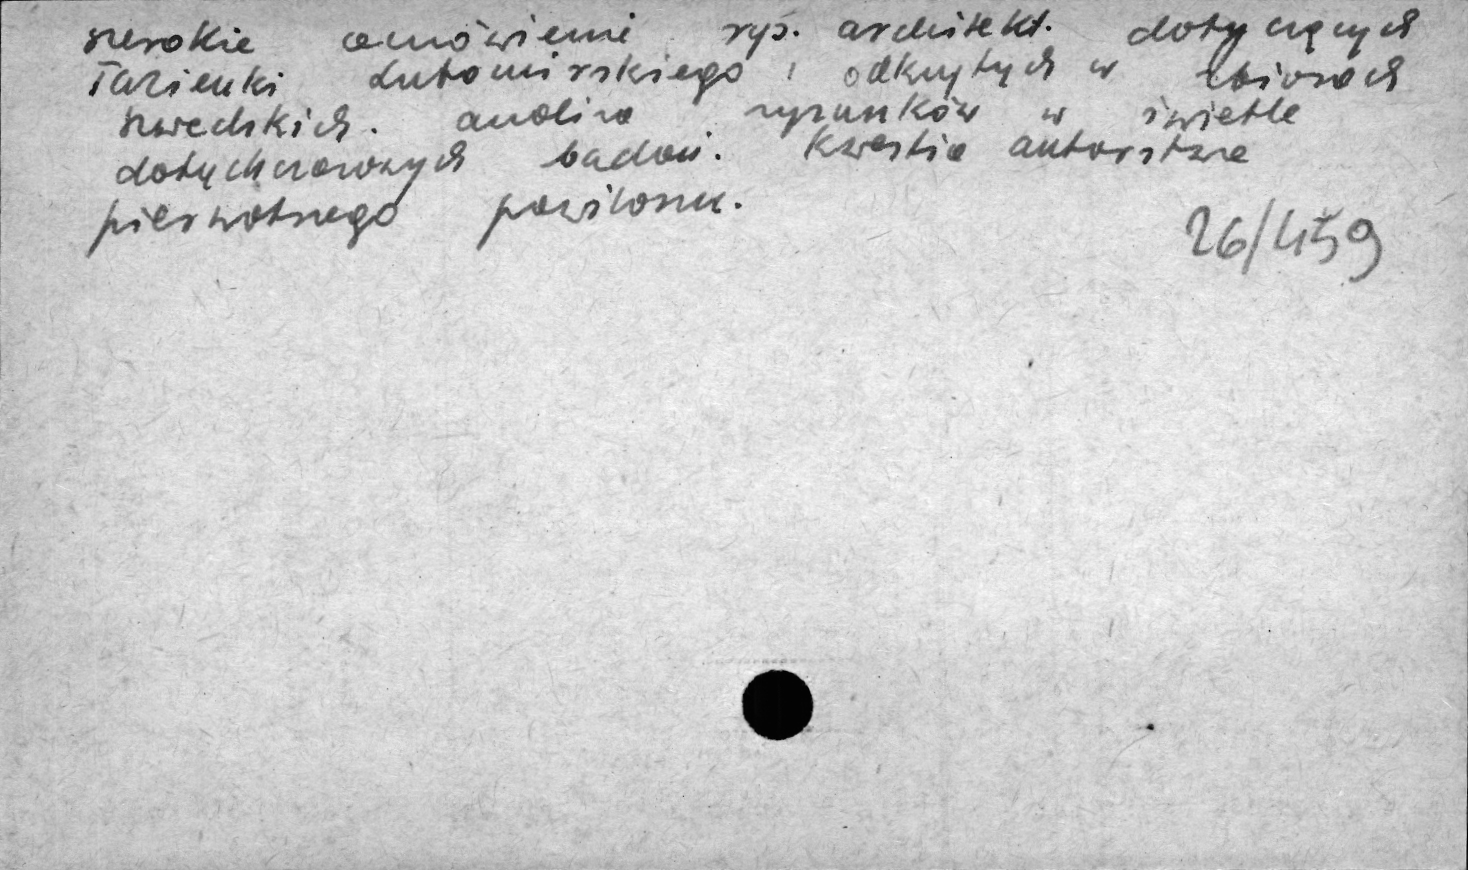 szerokie omówienie rys. architekt. dotyczących
Łazienki Lubomirskiego i odkrytych w zbiorach
szwedzkich. analiza rysunków w świetle
dotychczasowych badań. Kwestia autorstwa
pierwotnego pawilonu.
26/459